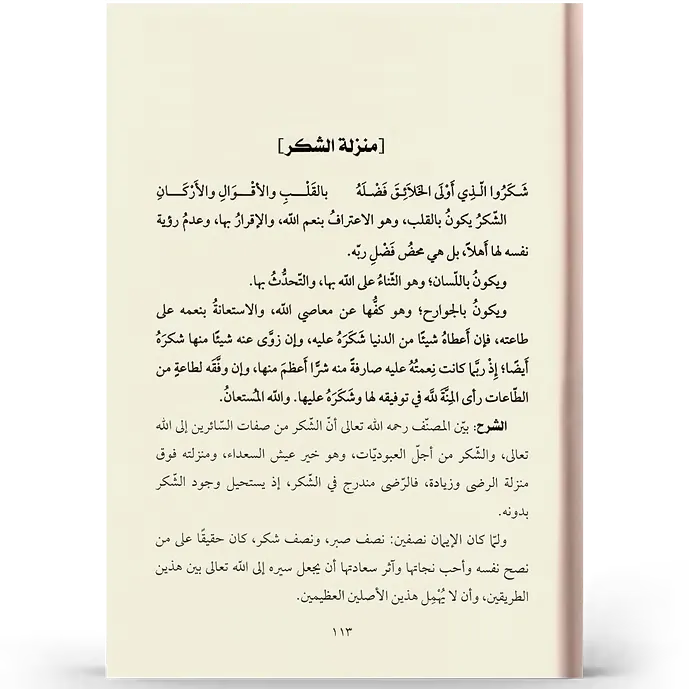 [منزلة الشكر]
شَـكَـرُوا الّـذِي أَوْلَى الخَلَائِـقَ فَضْـلَهُ بالقَلْـبِ والأقْـوَالِ والأَرْكَـانِ
الشّكرُ يكونُ بالقلب، وهو الاعترافُ بنعم الله، والإقرارُ بها، وعدمُ رؤية
نفسه لها أَهلاً، بل هي محضُ فَضْلِ ربّه.
ويكونُ باللّسان؛ وهو الثّناءُ على الله بها، والتّحدُّثُ بها.
ويكونُ بالجوارح؛ وهو كفُّها عن معاصي الله، والاستعانةُ بنعمه على
طاعته، فإن أَعطاهُ شيئًا من الدنيا شَكَرَهُ عليه، وإن زوَّى عنه شيئًا منها شكرَهُ
أَيضًا؛ إِذْ ربَّما كانت نِعمتُهُ عليه صارفةً منه شرًّا أَعظمَ منها، وإن وفَّقَه لطاعةٍ من
الطّاعات رأى المِنَّةَ للَّه في توفيقه لها وشَكَرَهُ عليها. والله المُستعانُ.
الشرح: بيّن المصنّف رحمه الله تعالى أنّ الشّكر من صفات السّائرين إلى الله
تعالى، والشّكر من أجلّ العبوديّات، وهو خير عيش السعداء، ومنزلته فوق
منزلة الرضى وزيادة، فالرّضى مندرج في الشّكر، إذ يستحيل وجود الشّكر
بدونه.
ولمّا كان الإيمان نصفين: نصف صبر، ونصف شكر، كان حقيقًا على من
نصح نفسه وأحب نجاتها وآثر سعادتها أن يجعل سيره إلى الله تعالى بين هذين
الطريقين، وأن لا يُهْمِل هذين الأصلين العظيمين.
١١٣